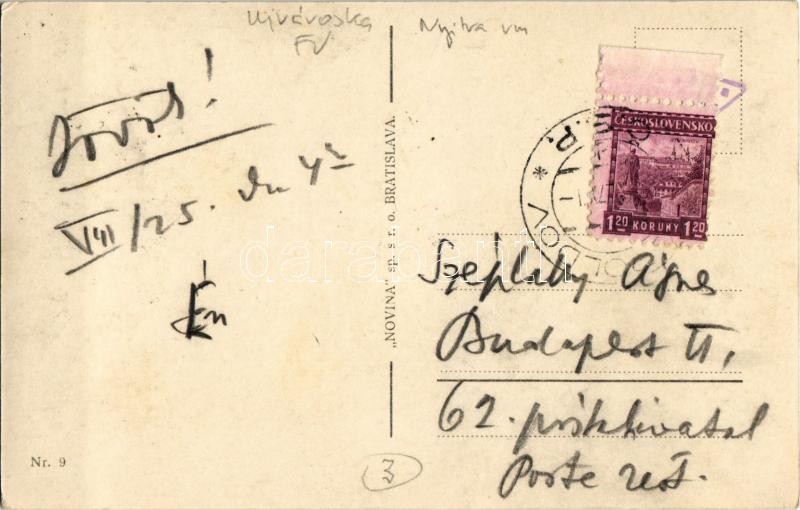 Ujvároska
FV
Nyitra vm
Jövök!
VIII/25. du 4h
Én
"NOVINA" sp. s r. o. BRATISLAVA.
ČESKOSLOVENSKO
1.20 KORUNY 1.20
Széplaky Ágnes
Budapest II.
62. póstahivatal
Poste rest.
Nr. 9
3
darabanth